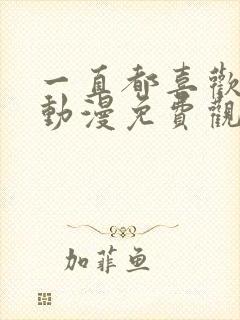 一直都喜歡
動漫免費觀
加菲鱼